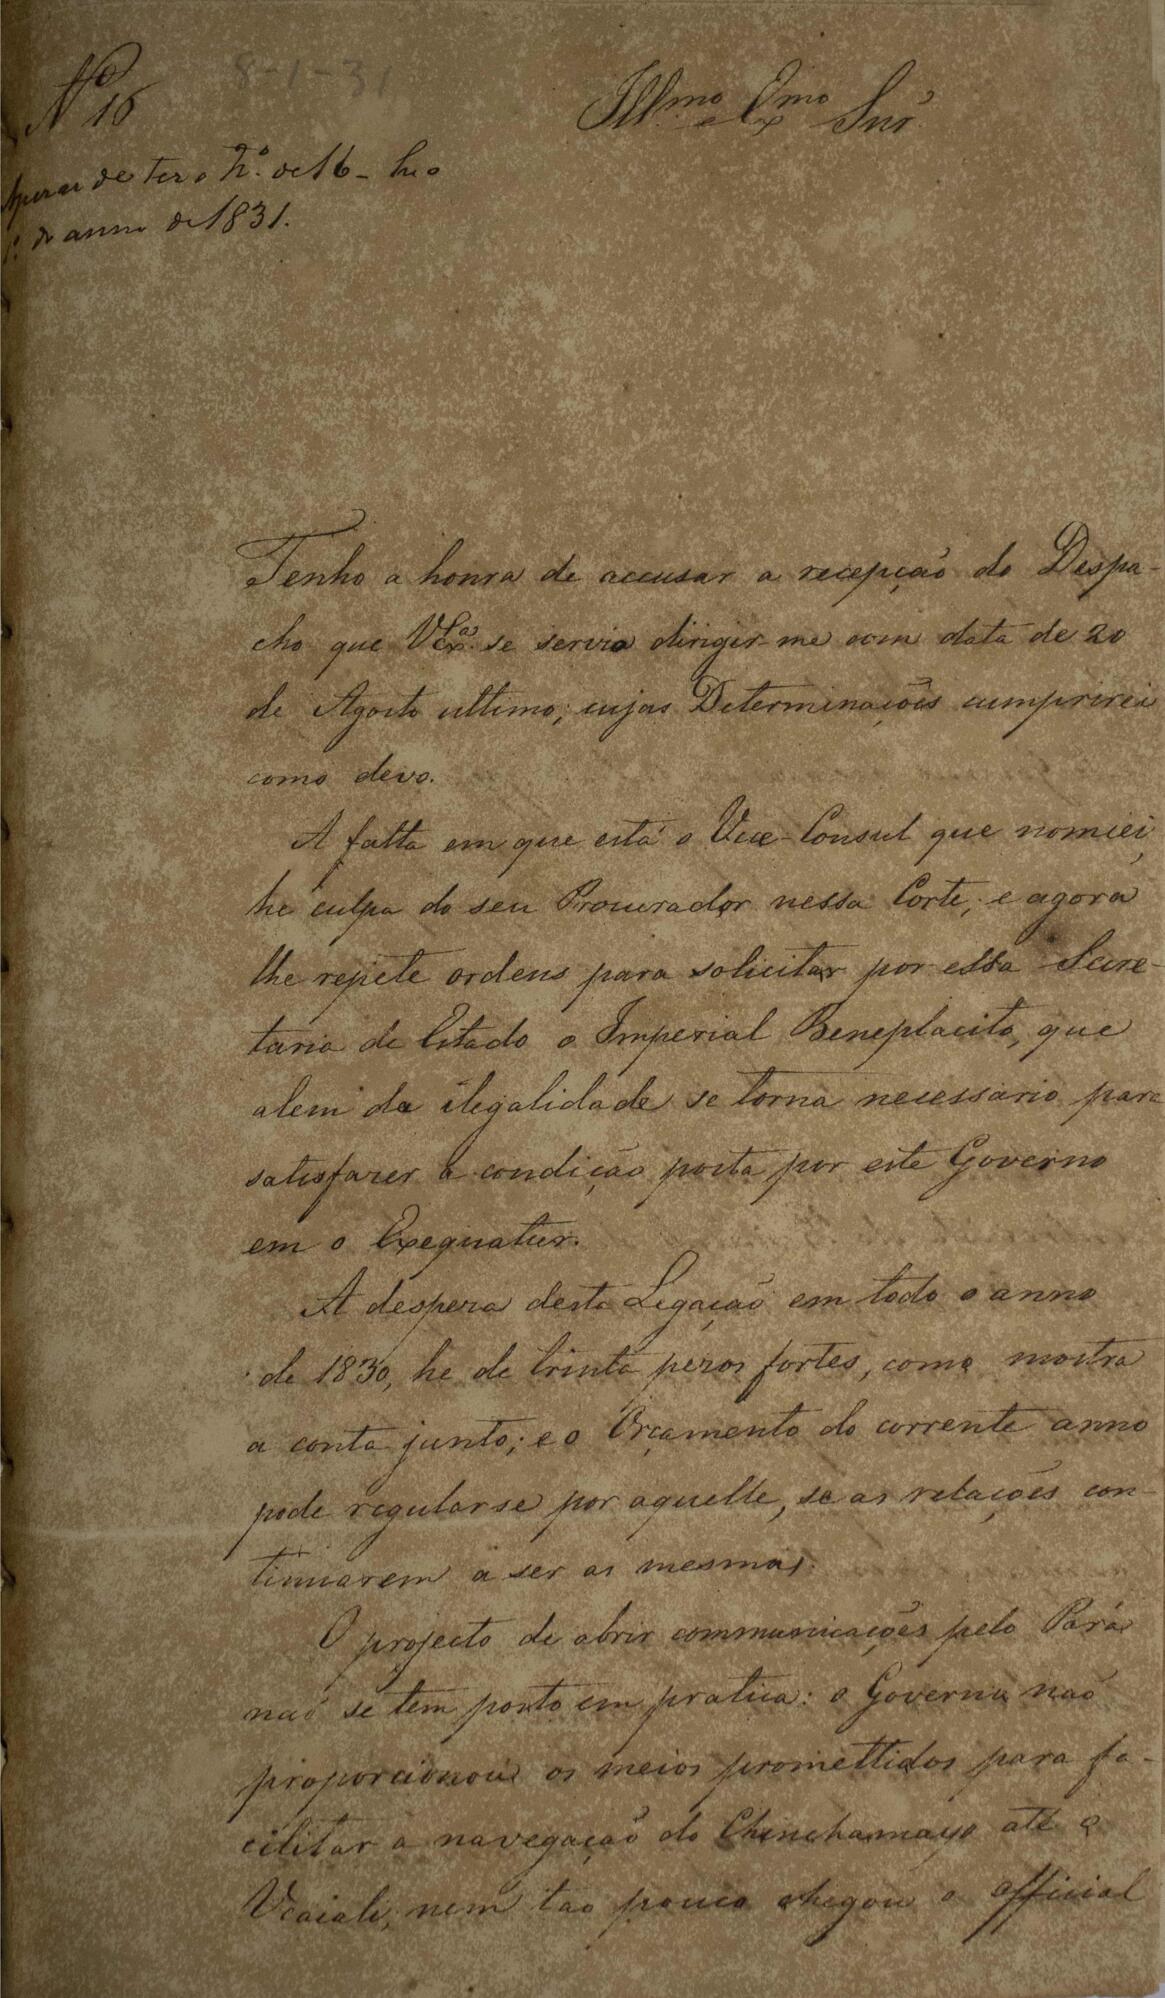 Nº 16
8-1-31
Illmo e Exmo Snr.
Apezar de ter o nº. de 16 - he o
1º. do anno de 1831.
Tenho a honra de accusar a recepção do Despa-
cho que VExª. se servio dirigir-me com data de 20
de Agosto ultimo; cujas Determinações cumprirei
como devo.
A falta em que está o Vice-Consul que nomeei,
he culpa do seu Procurador nessa Corte; e agora
lhe repete ordens para solicitar por essa Secre-
taria de Estado o Imperial Beneplacito, que
alem da ilegalidade se torna necessario para
satisfazer a condição posta por este Governo
em o Exequatur.
A despeza desta Legação em todo o anno
de 1830, he de trinta pezos fortes, como mostra
a conta junto; e o Orçamento do corrente anno
pode regularse por aquelle, se as relações con-
tinuarem a ser as mesmas.
O projecto de abrir communicações pelo Pará
naõ se tem posto em pratica: o Governo naõ
proporcionou os meios promettidos para fa-
cilitar a navegação do Chinchamayo até o
Ucaiali; nem tao pouco chegou o official